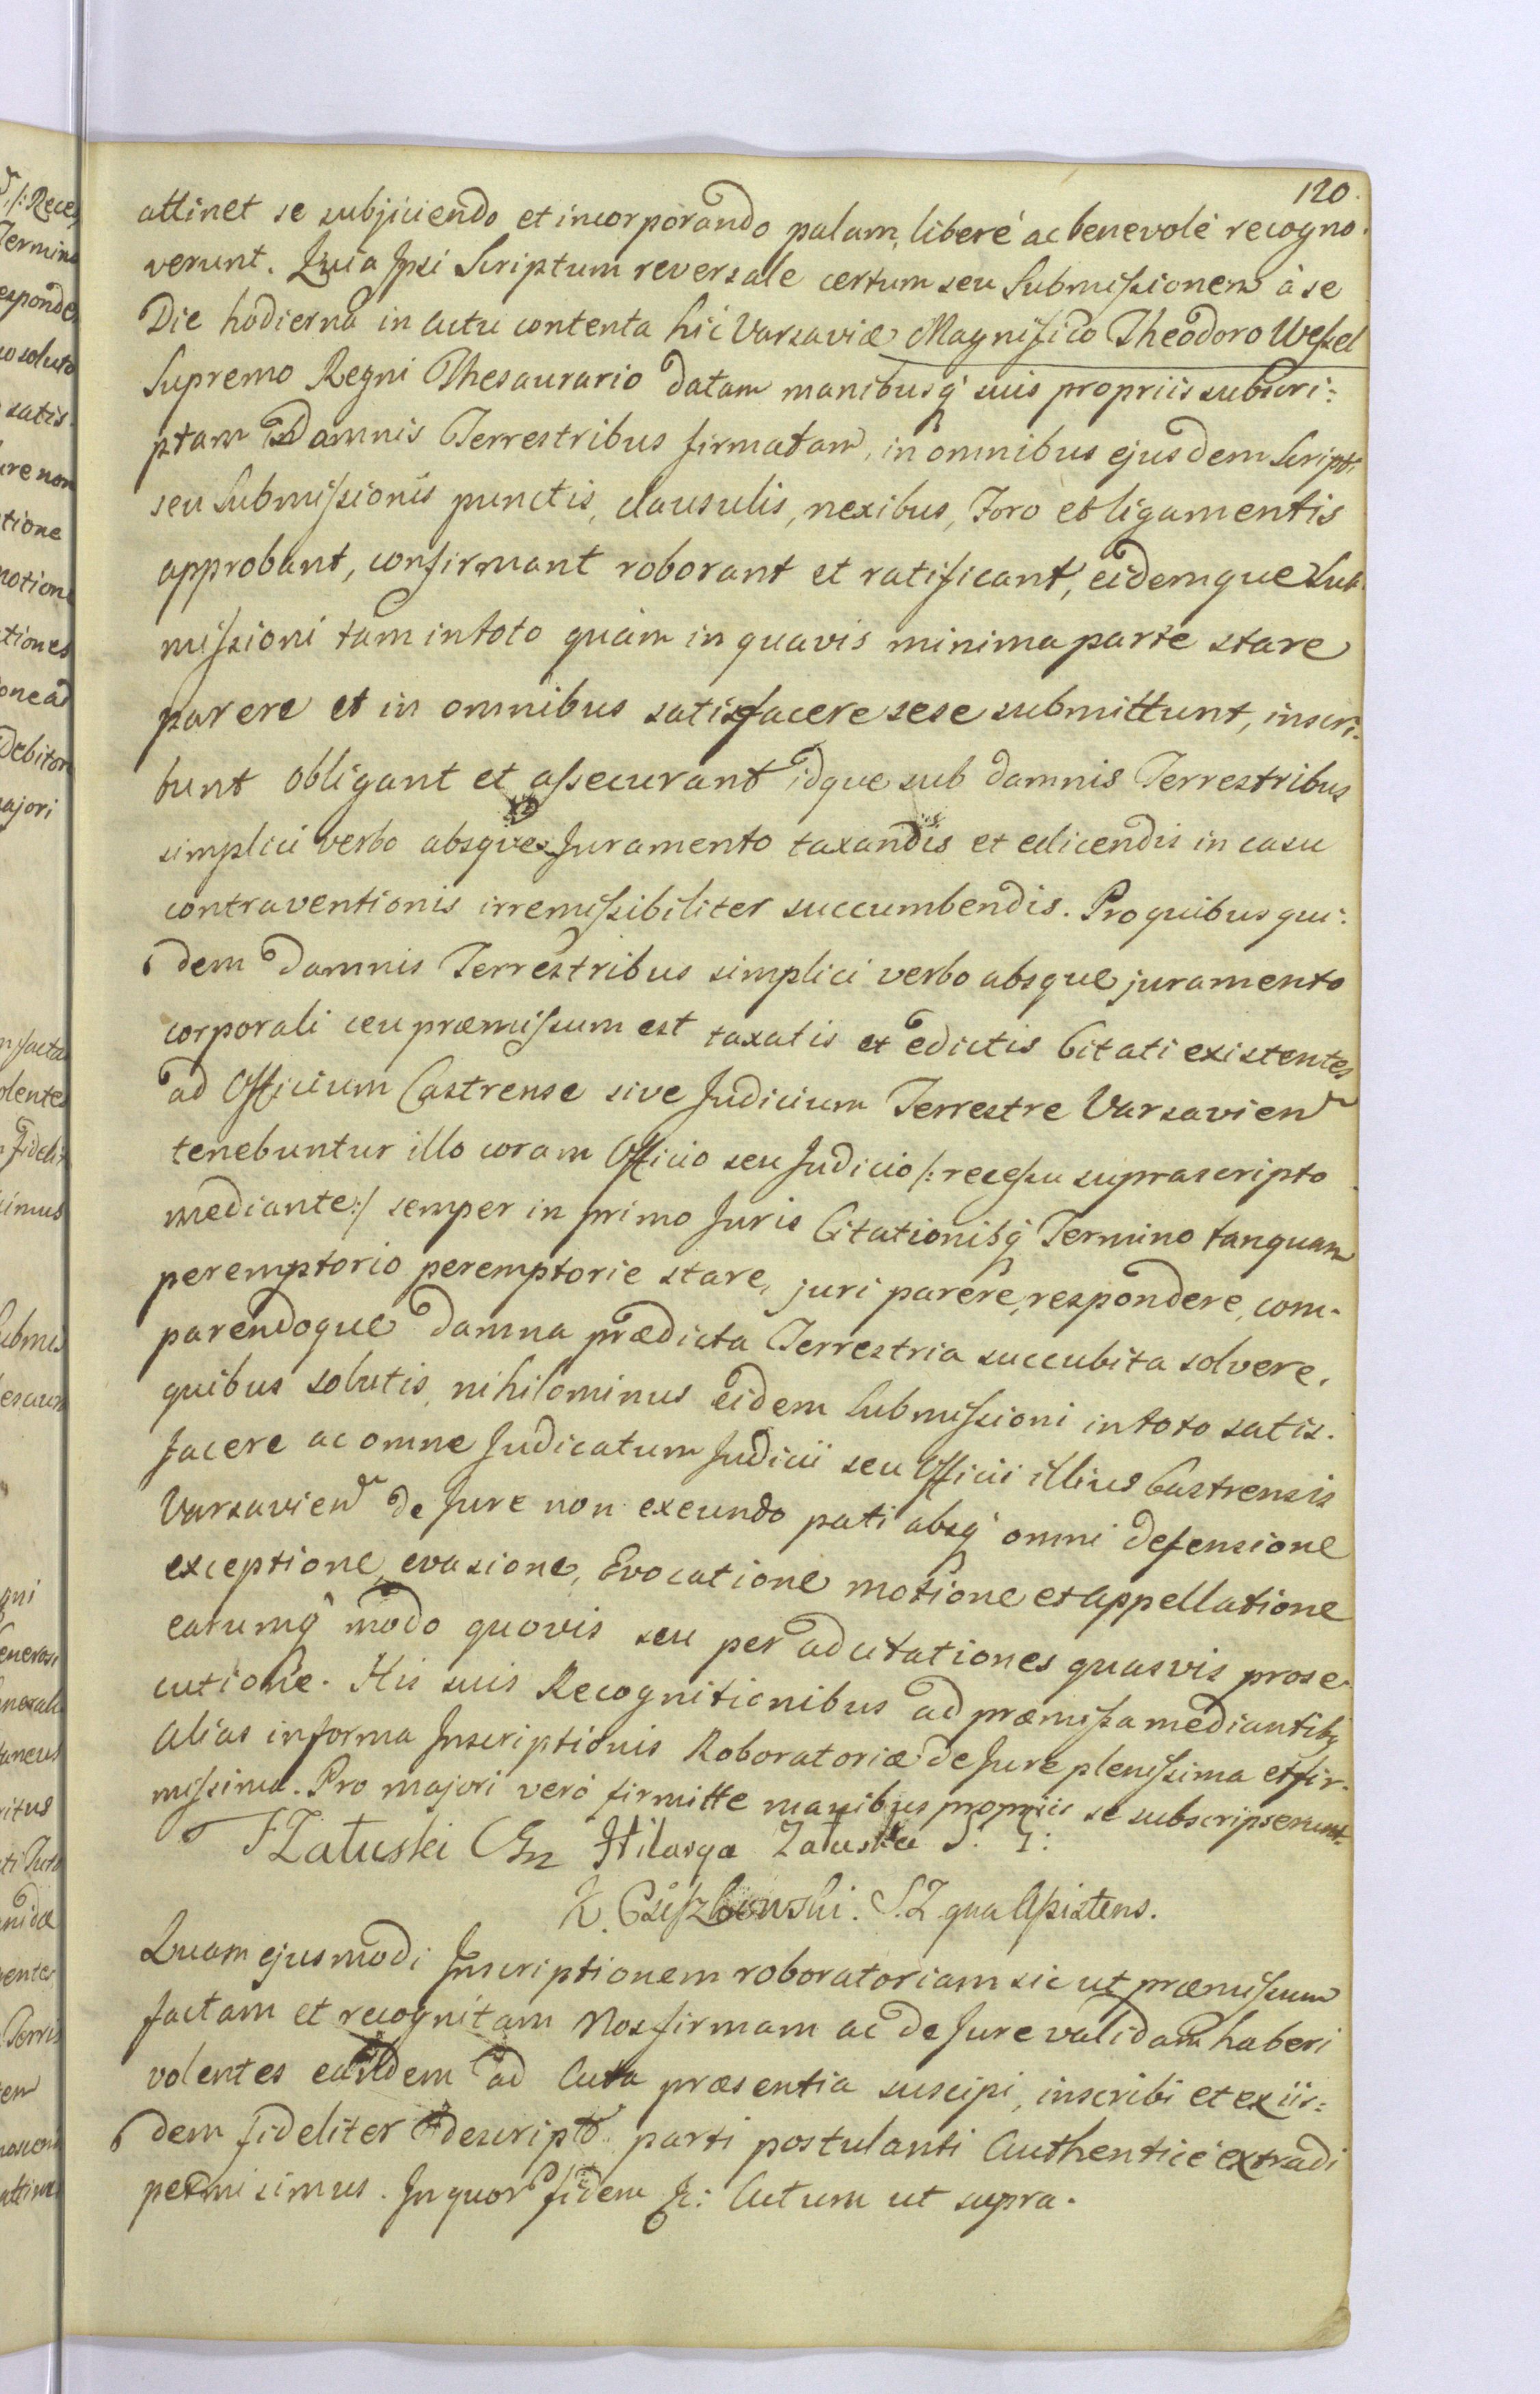 120.
attinet se subjiciendo et incorporando palam, liberé ac benevolé recogno-
verunt. Quia Ipsi Scriptum reversale certum seu Submissionem à se
Die hodierna in Actu contenta hic Varsaviæ Magnifico Theodoro Wessel
Supremo Regni Thesaurario datam manibusq suis propriis subscri=
ptam Damnis Terrestribus firmatam, in omnibus ejusdem Scripti
seu Submissionis punctis, clausulis, nexibus, Foro et ligamentis
approbant, confirmant roborant et ratificant, eidemque Sub-
missioni tam in toto quàm in quavis minima parte stare
parere et in omnibus satisfacere sese submittunt, inscri-
bunt obligant et assecurant idque sub damnis Terrestribus
simplici verbo absque Juramento taxandis et edicendis in casu
contraventionis irremissibiliter succumbendis. Pro quibus qui=
dem Damnis Terrestribus simplici verbo absque juramento
corporali ceu præmissum est taxatis et edictis Citati existentes
ad Officium Castrense sive Judicium Terrestre Varsavien
tenebuntur illo coram Officio seu Judicio /: recessu suprascripto
mediante :/ semper in primo Juris Citationisq Termino tanquam
peremptorio peremptorie stare, juri parere, respondere, com-
parendoque Damna prædicta Terrestria succubita solvere,
quibus solutis, nihilominus eidem Submissioni in toto satis-
facere ac omne Judicatum Judicii seu Officii illius Castrensis
Varsavien de Jure non exeundo pati absq omni defensione
exceptione, evasione, Evocatione motione et appellatione
earumq modo quovis seu per adcitationes quasvis prose-
cutione. His suis Recognitionibus ad præmissa mediantibq
Alias in forma Inscriptionis Roboratoriæ de Jure plenissima et fir-
missima. Pro majori veró firmitte manibus propriis se subscripserunt.
F Załuski Hilarya Załuska
K. S.Z. qua Assistens.
Quam ejusmodi Inscriptionem roboratoriam sic ut præmissum
factam et recognitam Nos firmam ac de Jure validam haberi
volentes eandem ad Acta præsentia suscipi, inscribi et ex iis=
dem fideliter descripto parti postulanti Authenticé extradi
permisimus. In quor fidem Actum ut supra.